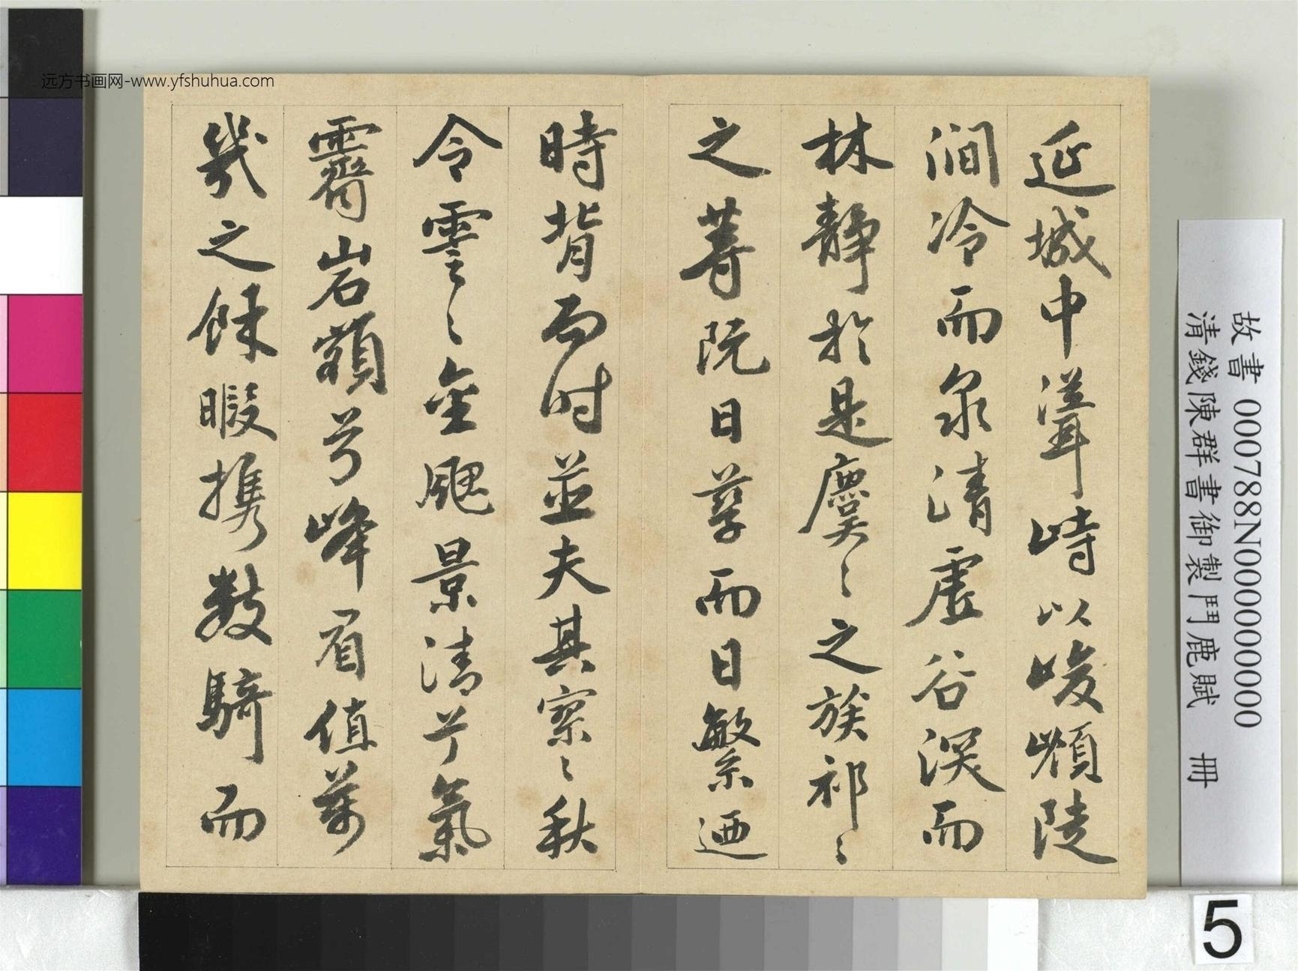 远方书画网-www.yfshuhua.com
延城中漥峙以峻嶒陡
涧冷而泉清虚谷深而
林静於是麌〻之族祁〻
之萻既日孳而日繁迺
時背而时並夫其寥〻秋
令雲〻金飔景清兮氣
霽岩額兮峰眉值萬
幾之餘暇攜數騎而
故書 000788N000000000
清錢陳群書御製鬥鹿賦 冊
5